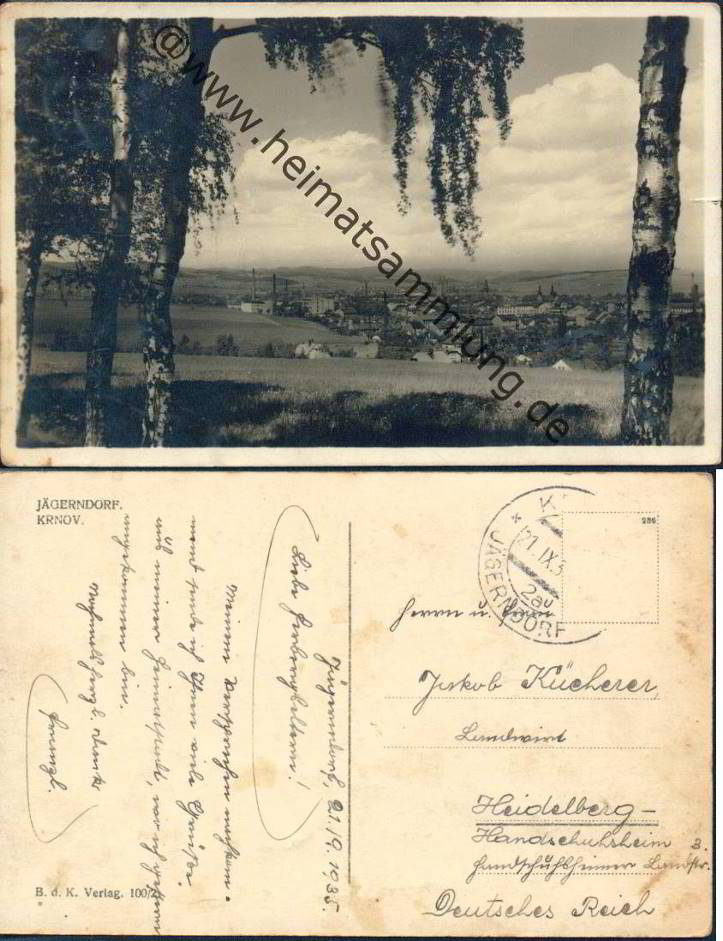 ©www.heimatsammlung.de
JÄGERNDORF.
KRNOV.
Jägerndorf, 21.9.1935.
Meinem Versprechen nachkom-
ment sende ich Ihnen viele Grüße
meiner Heimatstadt, wo ich gestern
angekommen bin.
B. d. K. Verlag. 100/2
K
* JÄGERNDORF
21.IX.3
2a
286
Herrn u. Frau
Jakob Kücherer,
Landwirt
Heidelberg-
Handschuhsheim 3.
Handschuhsheimer Landstr.
Deutsches Reich